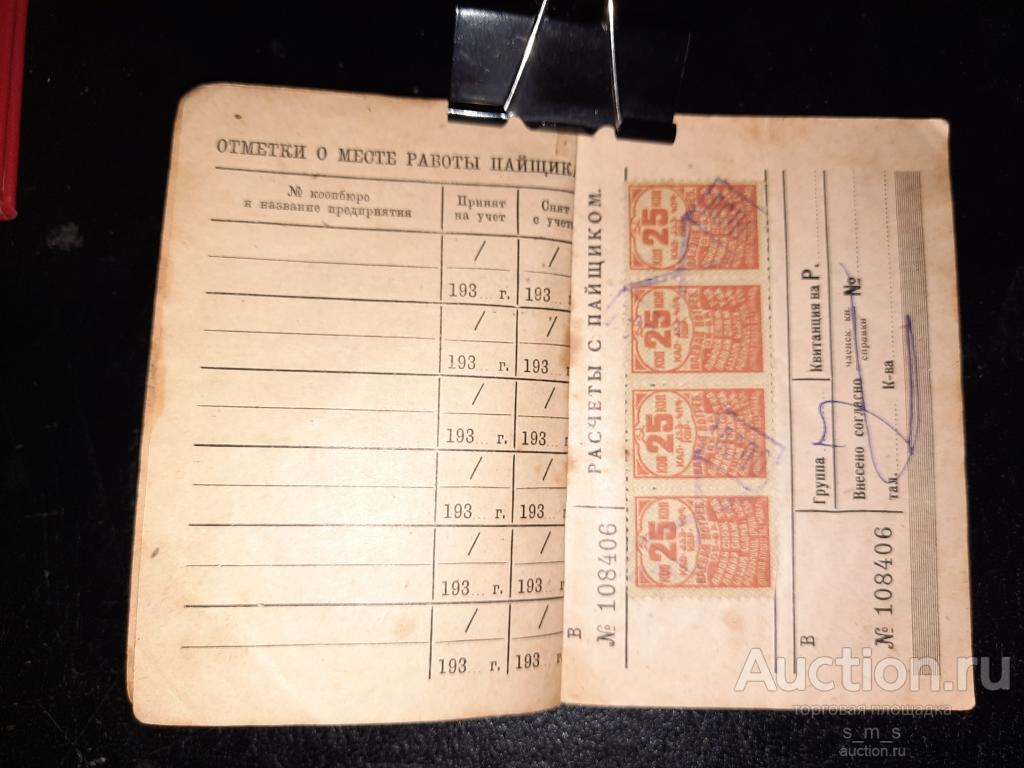 ОТМЕТКИ О МЕСТЕ РАБОТЫ ПАЙЩИК
№ коопбюро
и название предприятия
Принят
на учет
Снят
с учет
193... г. 193...
193... г. 193...
193... г. 193...
193... г. 193...
193... г. 193... г.
193... г. 193... г.
РАСЧЕТЫ С ПАЙЩИКОМ.
В
№ 108406
КОП 25 КОП
КОП 25 КОП
КОП 25 КОП
КОП 25 КОП
Группа
Квитанция на Р.
Внесено согласно членск. кн. справки №
тал. К-ва
В
№ 108406
Auction.ru
торговая площадка
s_m_s
auction.ru